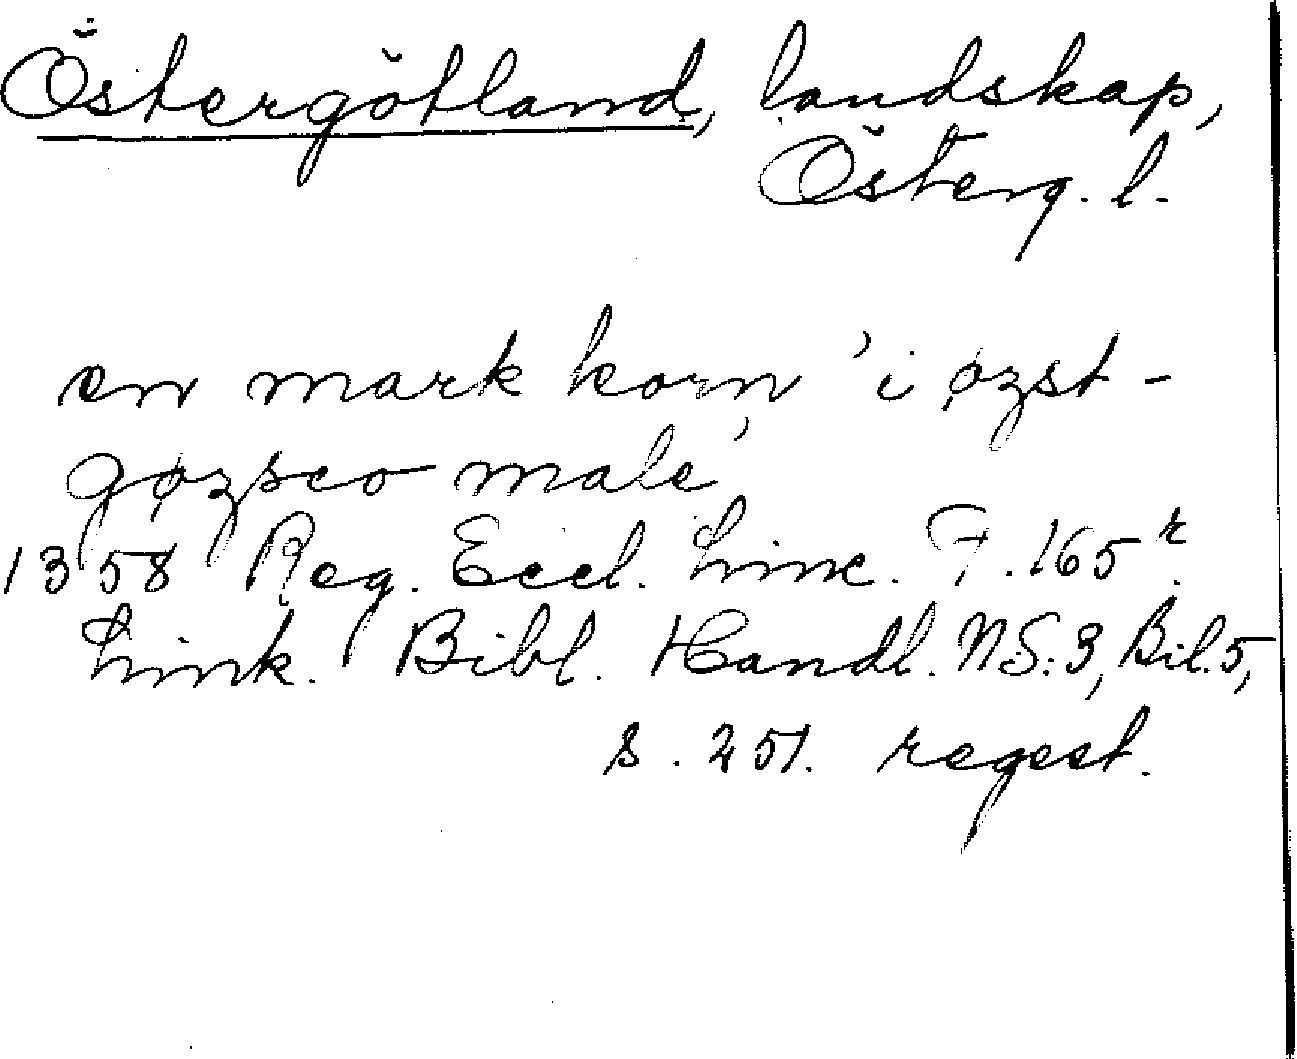 Östergötland, landskap,
Österg. l.
en mark korn 'i øzst-
gøzsco male'
1358 Reg. Eccl. Linc. F. 165r.
Link. Bibl. Handl. NS. 3, Bil. 5,
s. 251. regest.